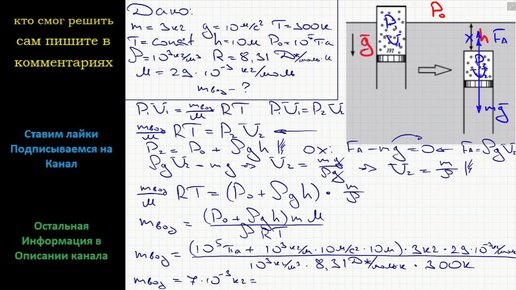 кто смог решить
сам пишите в
комментариях
Ставим лайки
Подписываемся на
Канал
Остальная
Информация в
Описании канала
Дано:
m = 3 кг g = 10 м/с² T = 300К
T = const h = 10м P₀ = 10⁵ Па
ρ = 10³ кг/м³ R = 8,31 Дж/моль·К
M = 29·10⁻³ кг/моль
mвоз - ?
P₁V₁ = mвоз/M RT P₁V₁ = P₂V₂
mвоз/M RT = P₂V₂
P₂ = P₀ + ρgh Ox: FA - mg = 0 FA = ρgV₂
ρgV₂ = mg ⇒ V₂ = mg/ρg ⇒ V₂ = m/ρ
mвоз/M RT = (P₀ + ρgh) · m/ρ
mвоз = (P₀ + ρgh) m M / ρRT
mвоз = (10⁵ Па + 10³ кг/м³ · 10 м/с² · 10м) · 3кг · 29·10⁻³ кг/моль / 10³ кг/м³ · 8,31 Дж/моль·К · 300К
mвоз = 7·10⁻³ кг =
P₀
g
P₁
V₁
x
h
FA
P₂
V₂
mg